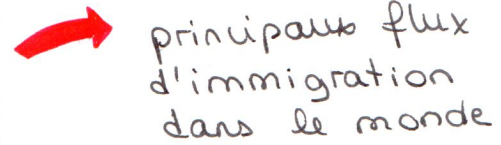 principaux flux
d'immigration
dans le monde